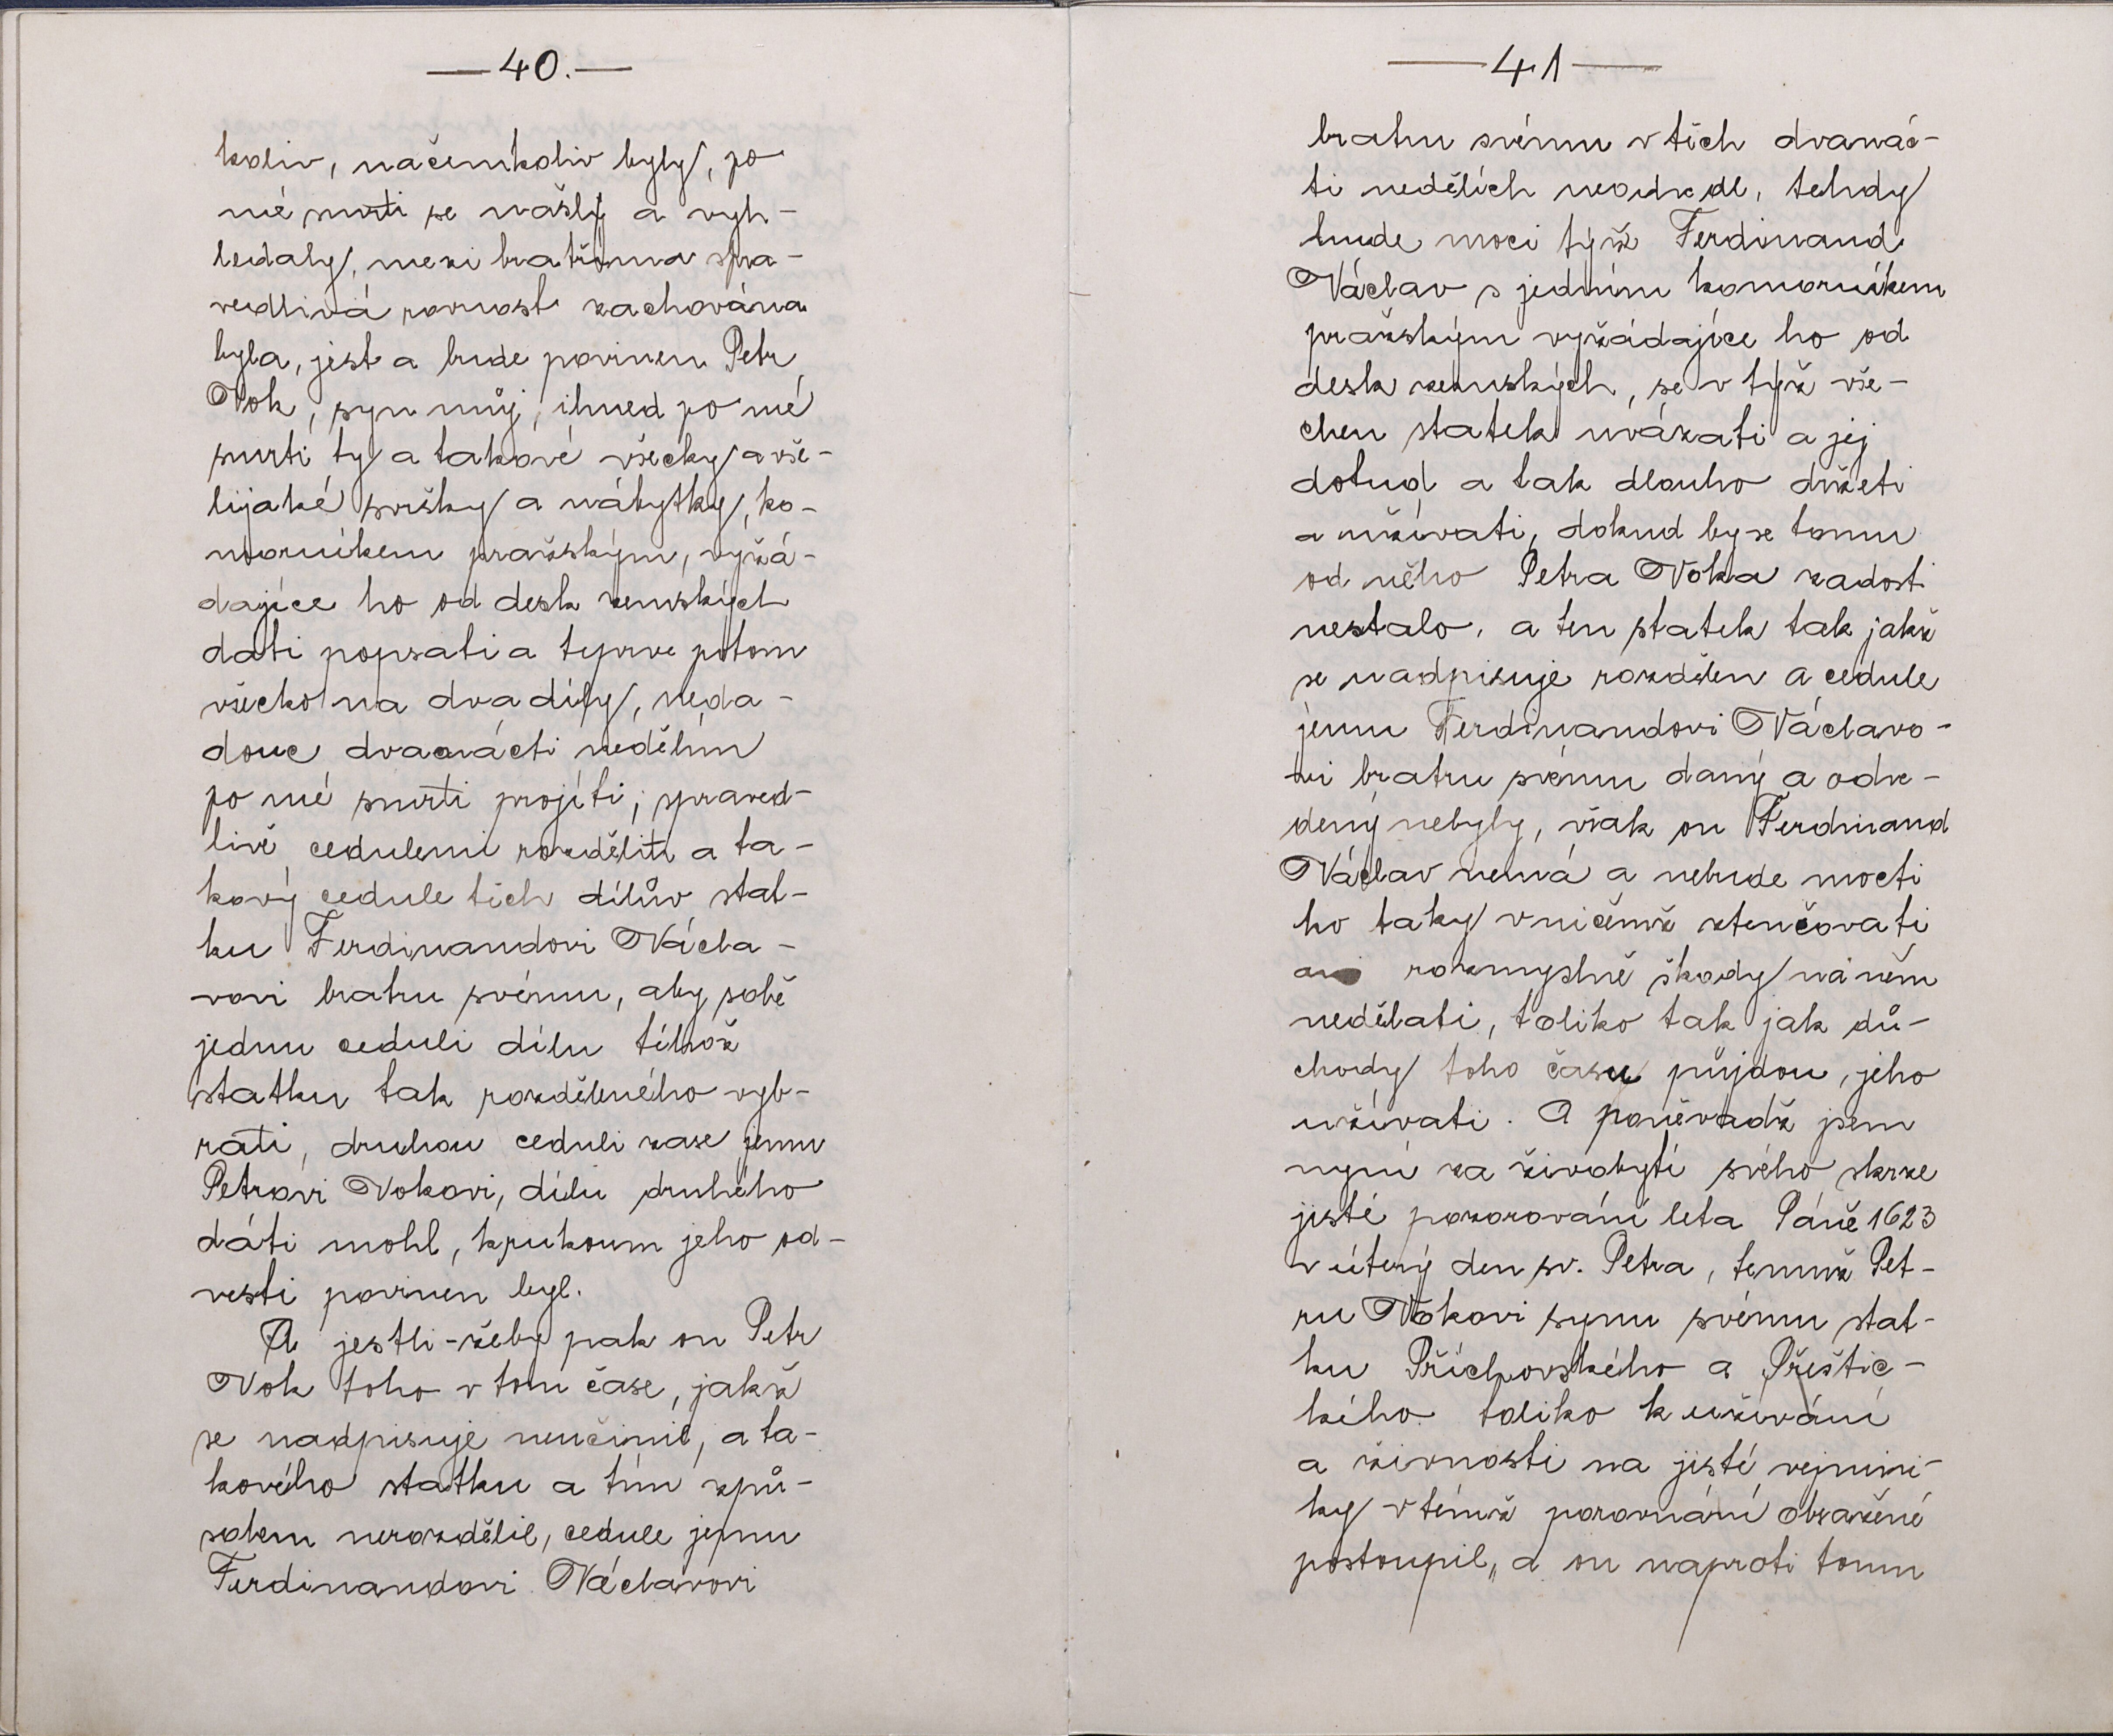 — 40. —
koliv, načemkoliv byly, po
mé smrti se našly a vyh-
ledaly, mezi bratřóma spra-
vedlivá rovnost zachována
byla, jest a bude povinen Petr
Vok, syn můj, ihned po mé
smrti ty a takové všecky a vše-
lijaké svršky a nábytky, ko-
morníkem pražským, vyžá-
dajíce ho od desk zemských
dati popsati a teprve potom
všecko na dva díly, neda-
douc dvanácti nedělím
po mé smrti projíti, spraved-
livě cedulemi rozděliti a ta-
kový cedule těch dílův stat-
ku Ferdinandovi Václa-
vovi bratru svému, aby sobě
jednu ceduli dílu téhož
statku tak rozděleného vyb-
rati, druhou ceduli zase jemu
Petrovi Vokovi, dílu druhého
dáti mohl, k rukoum jeho od-
vesti povinen byl.
A jestli-žeby pak on Petr
Vok toho v tom čase, jakž
se nadpisuje neučinil, a ta-
kového statku a tím způ-
sobem nerozdělil, cedule jemu
Ferdinandovi Václavovi
— 41 —
bratru svému v těch dvanác-
ti nedělích neodvedl, tehdy
bude moci týž Ferdinand
Václav s jedním komorníkem
pražským vyžádajíce ho od
desk zemských, se v týž vše-
chen statek uvázati a jej
dotud a tak dlouho držeti
a užívati, dokud by se tomu
od něho Petra Voka zadosti
nestalo, a ten statek tak jakž
se nadpisuje rozdělen a cedule
jemu Ferdinandovi Václavo-
vi bratru svému daný a odve-
dený nebyly, však on Ferdinand
Václav nemá a nebude mocti
ho taky v ničemž ztenčovati
ani rozmyslně škody na něm
nedělati, toliko tak jak dů-
chody toho času půjdou, jeho
užívati. A poněvadž jsem
nyní za živobytí svého skrze
jisté pozorování léta Páně 1623
v úterý den sv. Petra, temuž Pet-
ru Vokovi synu svému stat-
ku Příchovského a Přeštic-
kého toliko k užívání
a živnosti na jisté vejmini-
ky v témž porovnání obsažené
postoupil, a on naproti tomu